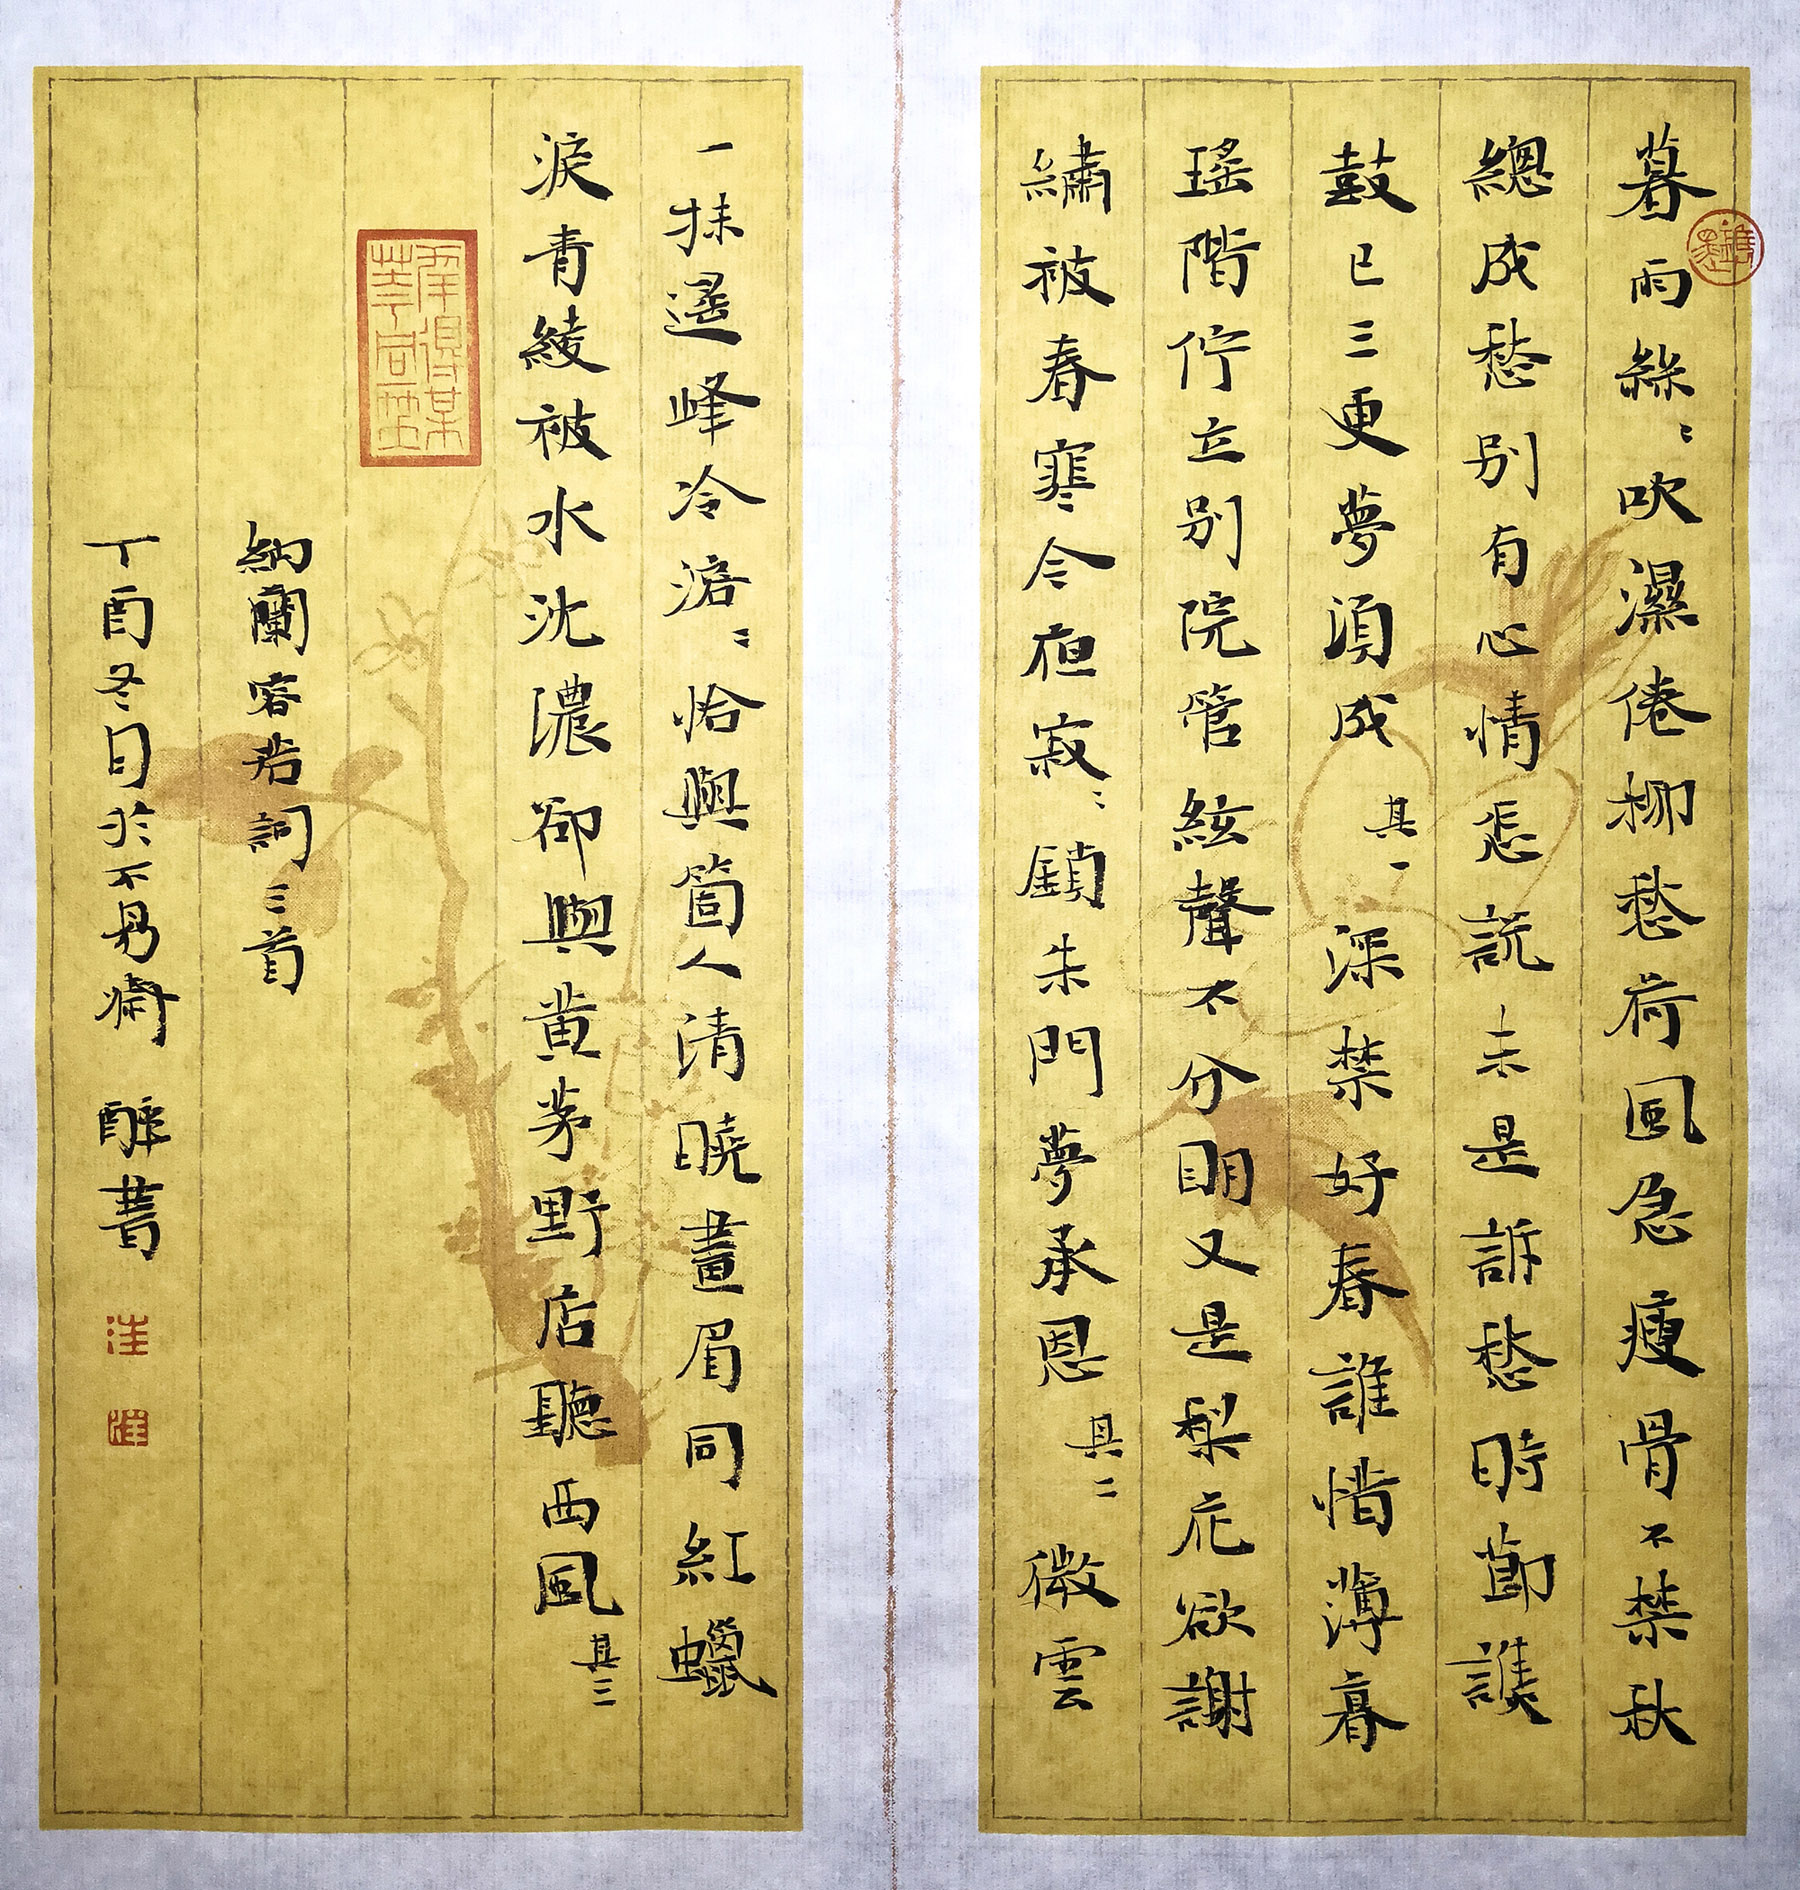 暮雨絲〻吹濕倦柳愁荷風急瘦骨不禁秋
總成愁別有心情怎說未是訴愁時節譙
鼓已三更夢須成 其一 深禁好春誰惜薄暮
瑤階佇立別院管絃聲不分明又是梨花欲謝
繡被春寒今夜寂〻鎖朱門夢承恩 其二 微雲
一抹遙峰冷溶〻恰與箇人清曉畫眉同紅蠟
淚青綾被水沈濃卻與黃茅野店聽西風 其三
納蘭容若詞三首
丁酉冬月於不易齋 醉書